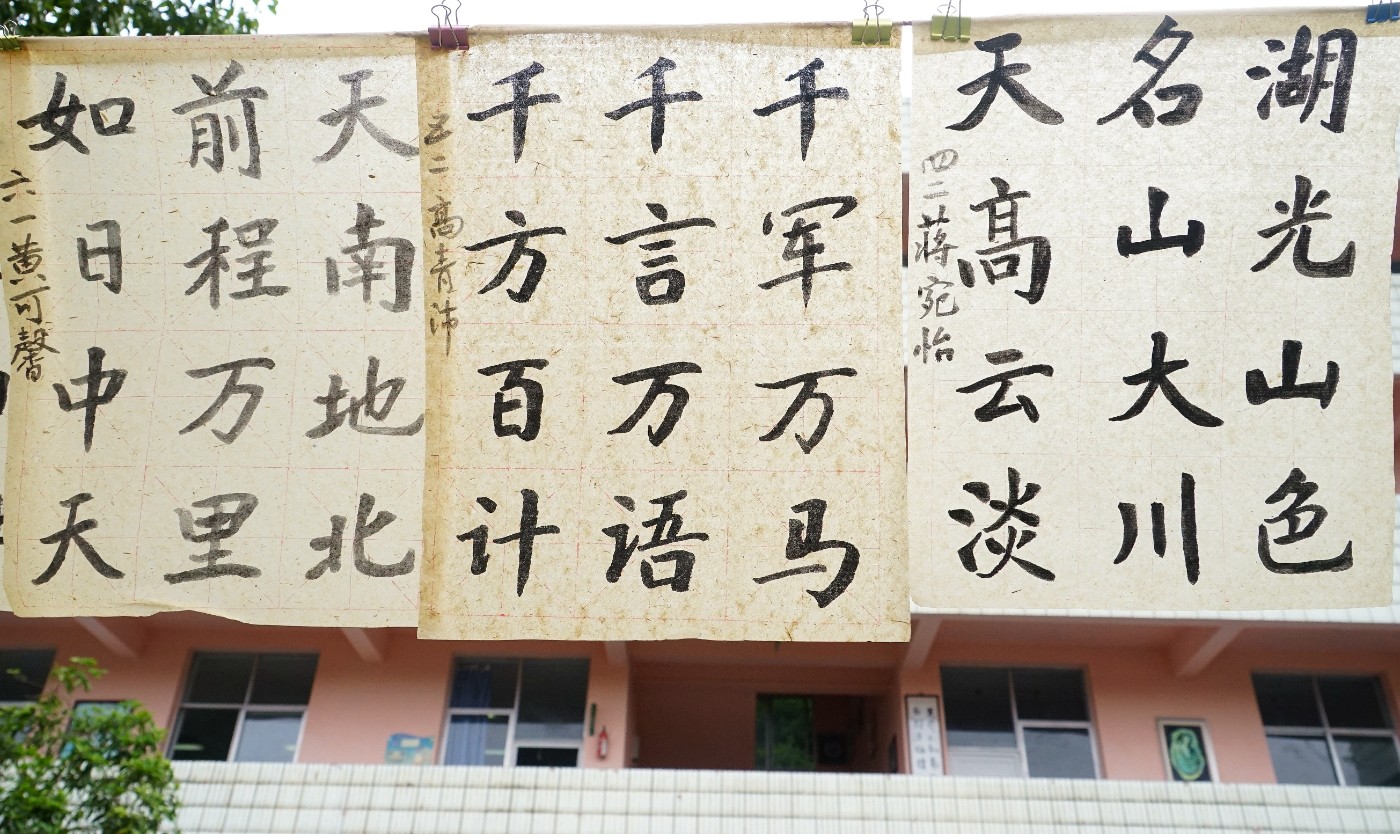 湖光山色
名山大川
天高云淡
四二蒋宛怡
千军万马
千言万语
千方百计
五二高青沛
天南地北
前程万里
如日中天
六一黄可馨